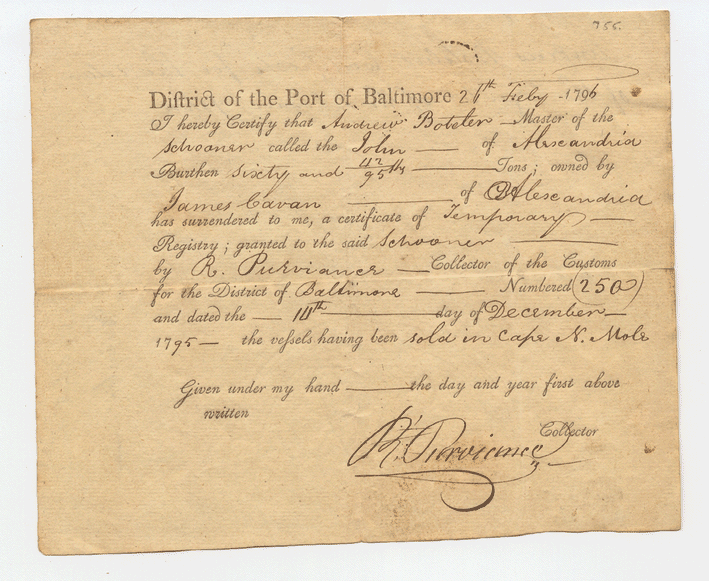 755.
Diſtrict of the Port of Baltimore 26th Feby 1796
I hereby Certify that Andrew Boteler Master of the
Schooner called the John of Alexandria
Burthen Sixty and 42/95ths Tons; owned by
James Cavan of Alexandria
has surrendered to me, a certificate of Temporary
Registry; granted to the said Schooner
by R. Purviance Collector of the Customs
for the District of Baltimore Numbered (250)
and dated the 14th day of December
1795 the veſsels having been sold in Cape N. Mole
Given under my hand the day and year first above
written
Collector
R. Purviance